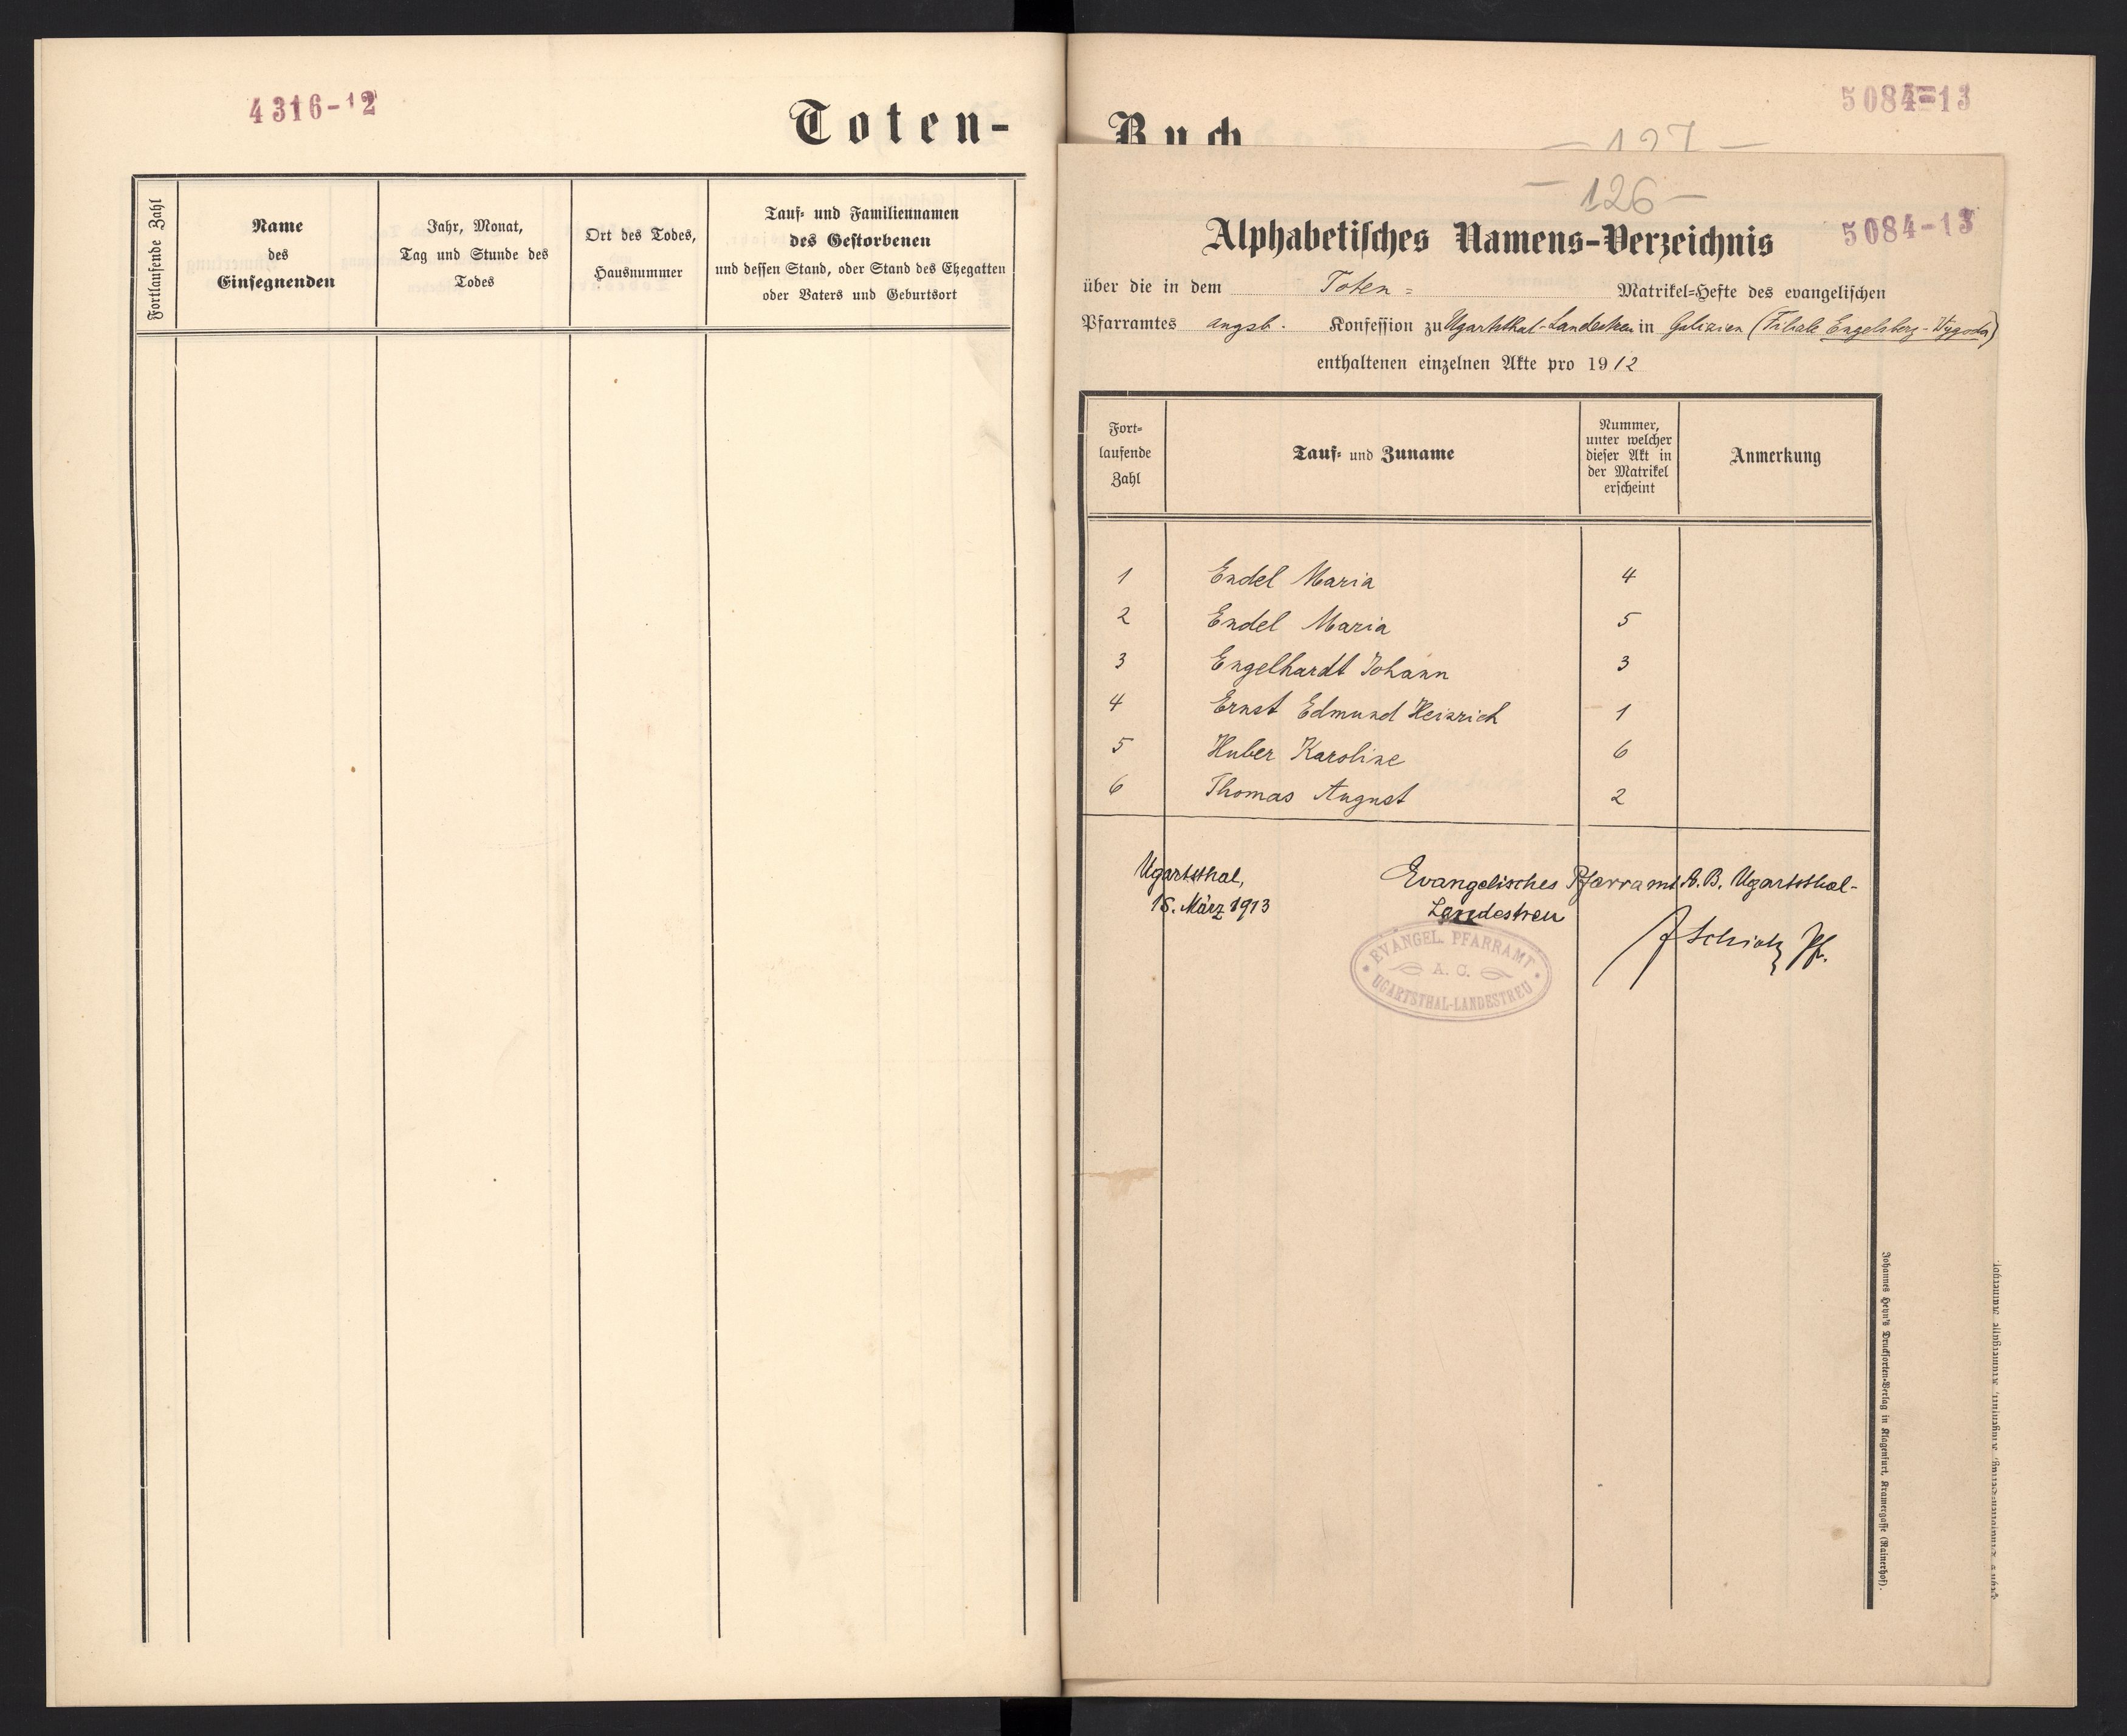 4316-12
Toten-
Fortlaufende Zahl
Name
des
Einsegnenden
Jahr, Monat,
Tag und Stunde des
Todes
Ort des Todes,
Hausnummer
Tauf- und Familiennamen
des Gestorbenen
und dessen Stand, oder Stand des Ehegatten
oder Vaters und Geburtsort
5084-13
Buch
— 127 —
— 126 —
Alphabetisches Namens-Verzeichnis
5084-13
über die in dem Toten= Matrikel-Hefte des evangelischen
Pfarramtes augsb. Konfession zu Ugartsthal-Landestreu in Galizien (Filiale Engelsberg-Wygoda)
enthaltenen einzelnen Akte pro 1912
Fort-
laufende
Zahl
Tauf- und Zuname
Nummer,
unter welcher
dieser Akt in
der Matrikel
erscheint
Anmerkung
1 Endel Maria 4
2 Endel Maria 5
3 Engelhardt Johann 3
4 Ernst Edmund Heinrich 1
5 Huber Karoline 6
6 Thomas August 2
Ugartsthal,
15. März 1913
Evangelisches Pfarramt A.B. Ugartsthal-
Landestreu
Pf.
EVANGEL. PFARRAMT
A. C.
UGARTSTHAL-LANDESTREU
Johannes Heyn's Drucksorten-Verlag in Klagenfurt, Kramergasse (Rainerhof).